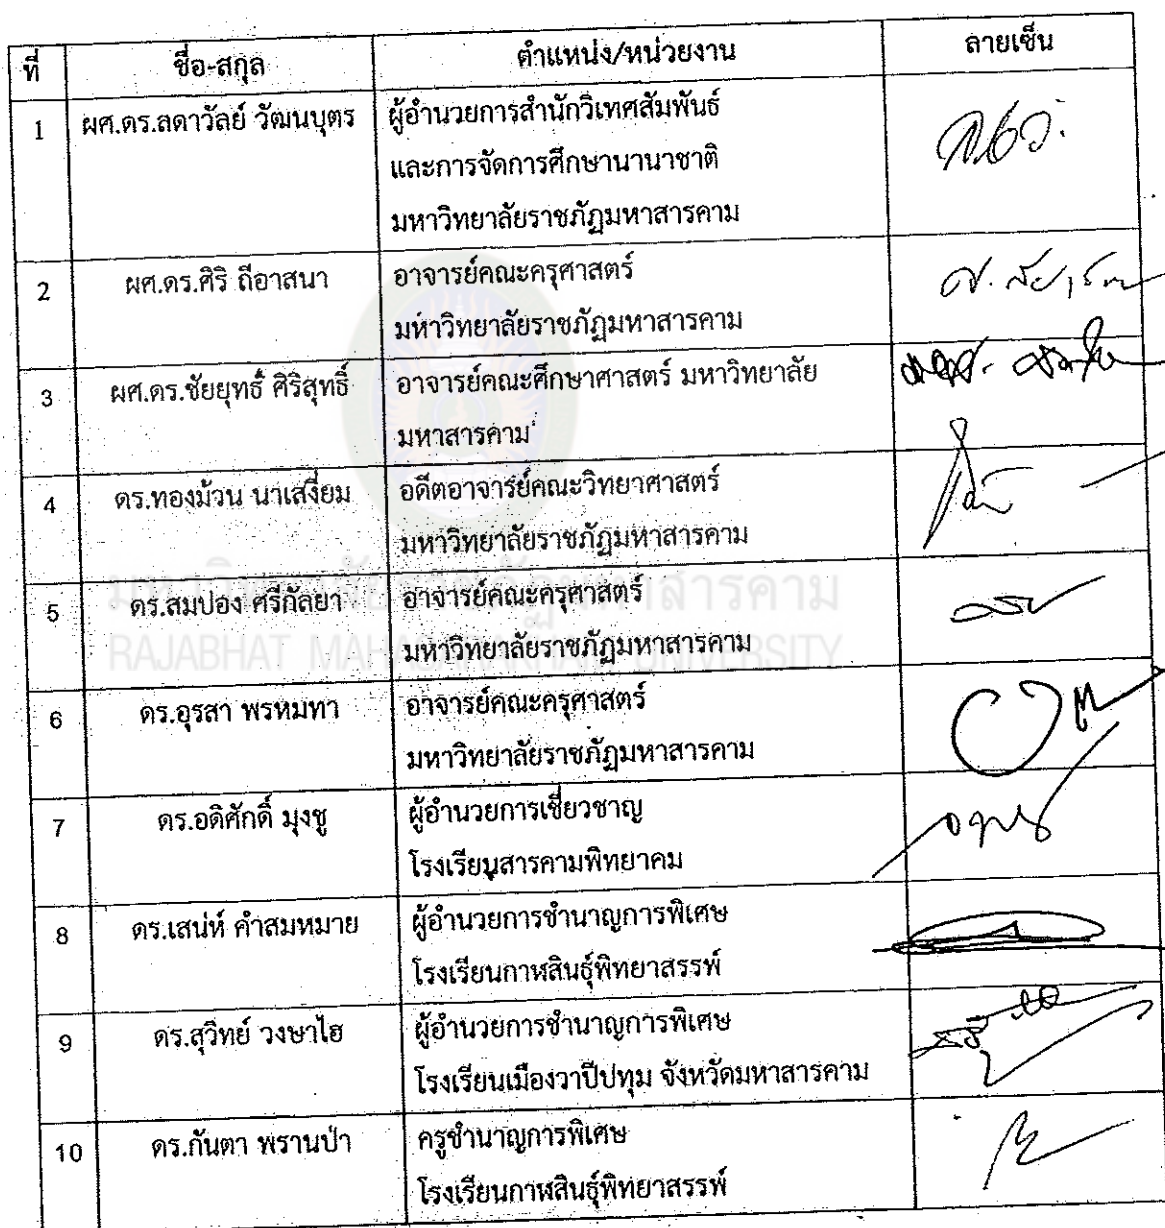 ที่ ชื่อ-สกุล ตำแหน่ง/หน่วยงาน ลายเซ็น
1 ผศ.ดร.ลดาวัลย์ วัฒนบุตร ผู้อำนวยการสำนักวิเทศสัมพันธ์
และการจัดการศึกษานานาชาติ
มหาวิทยาลัยราชภัฏมหาสารคาม
2 ผศ.ดร.ศิริ ถีอาสนา อาจารย์คณะครุศาสตร์
มหาวิทยาลัยราชภัฏมหาสารคาม
3 ผศ.ดร.ชัยยุทธ์ ศิริสุทธิ์ อาจารย์คณะศึกษาศาสตร์ มหาวิทยาลัย
มหาสารคาม
4 ดร.ทองม้วน นาเสงี่ยม อดีตอาจารย์คณะวิทยาศาสตร์
มหาวิทยาลัยราชภัฏมหาสารคาม
มหาวิทยาลัยราชภัฏมหาสารคาม
5 ดร.สมปอง ศรีกัลยา อาจารย์คณะครุศาสตร์
มหาวิทยาลัยราชภัฏมหาสารคาม
RAJABHAT MAHASARAKHAM UNIVERSITY
6 ดร.อุรสา พรหมทา อาจารย์คณะครุศาสตร์
มหาวิทยาลัยราชภัฏมหาสารคาม
7 ดร.อดิศักดิ์ มุงชู ผู้อำนวยการเชี่ยวชาญ
โรงเรียนสารคามพิทยาคม
8 ดร.เสน่ห์ คำสมหมาย ผู้อำนวยการชำนาญการพิเศษ
โรงเรียนกาฬสินธุ์พิทยาสรรพ์
9 ดร.สุวิทย์ วงษาไฮ ผู้อำนวยการชำนาญการพิเศษ
โรงเรียนเมืองวาปีปทุม จังหวัดมหาสารคาม
10 ดร.กันตา พรานป่า ครูชำนาญการพิเศษ
โรงเรียนกาฬสินธุ์พิทยาสรรพ์